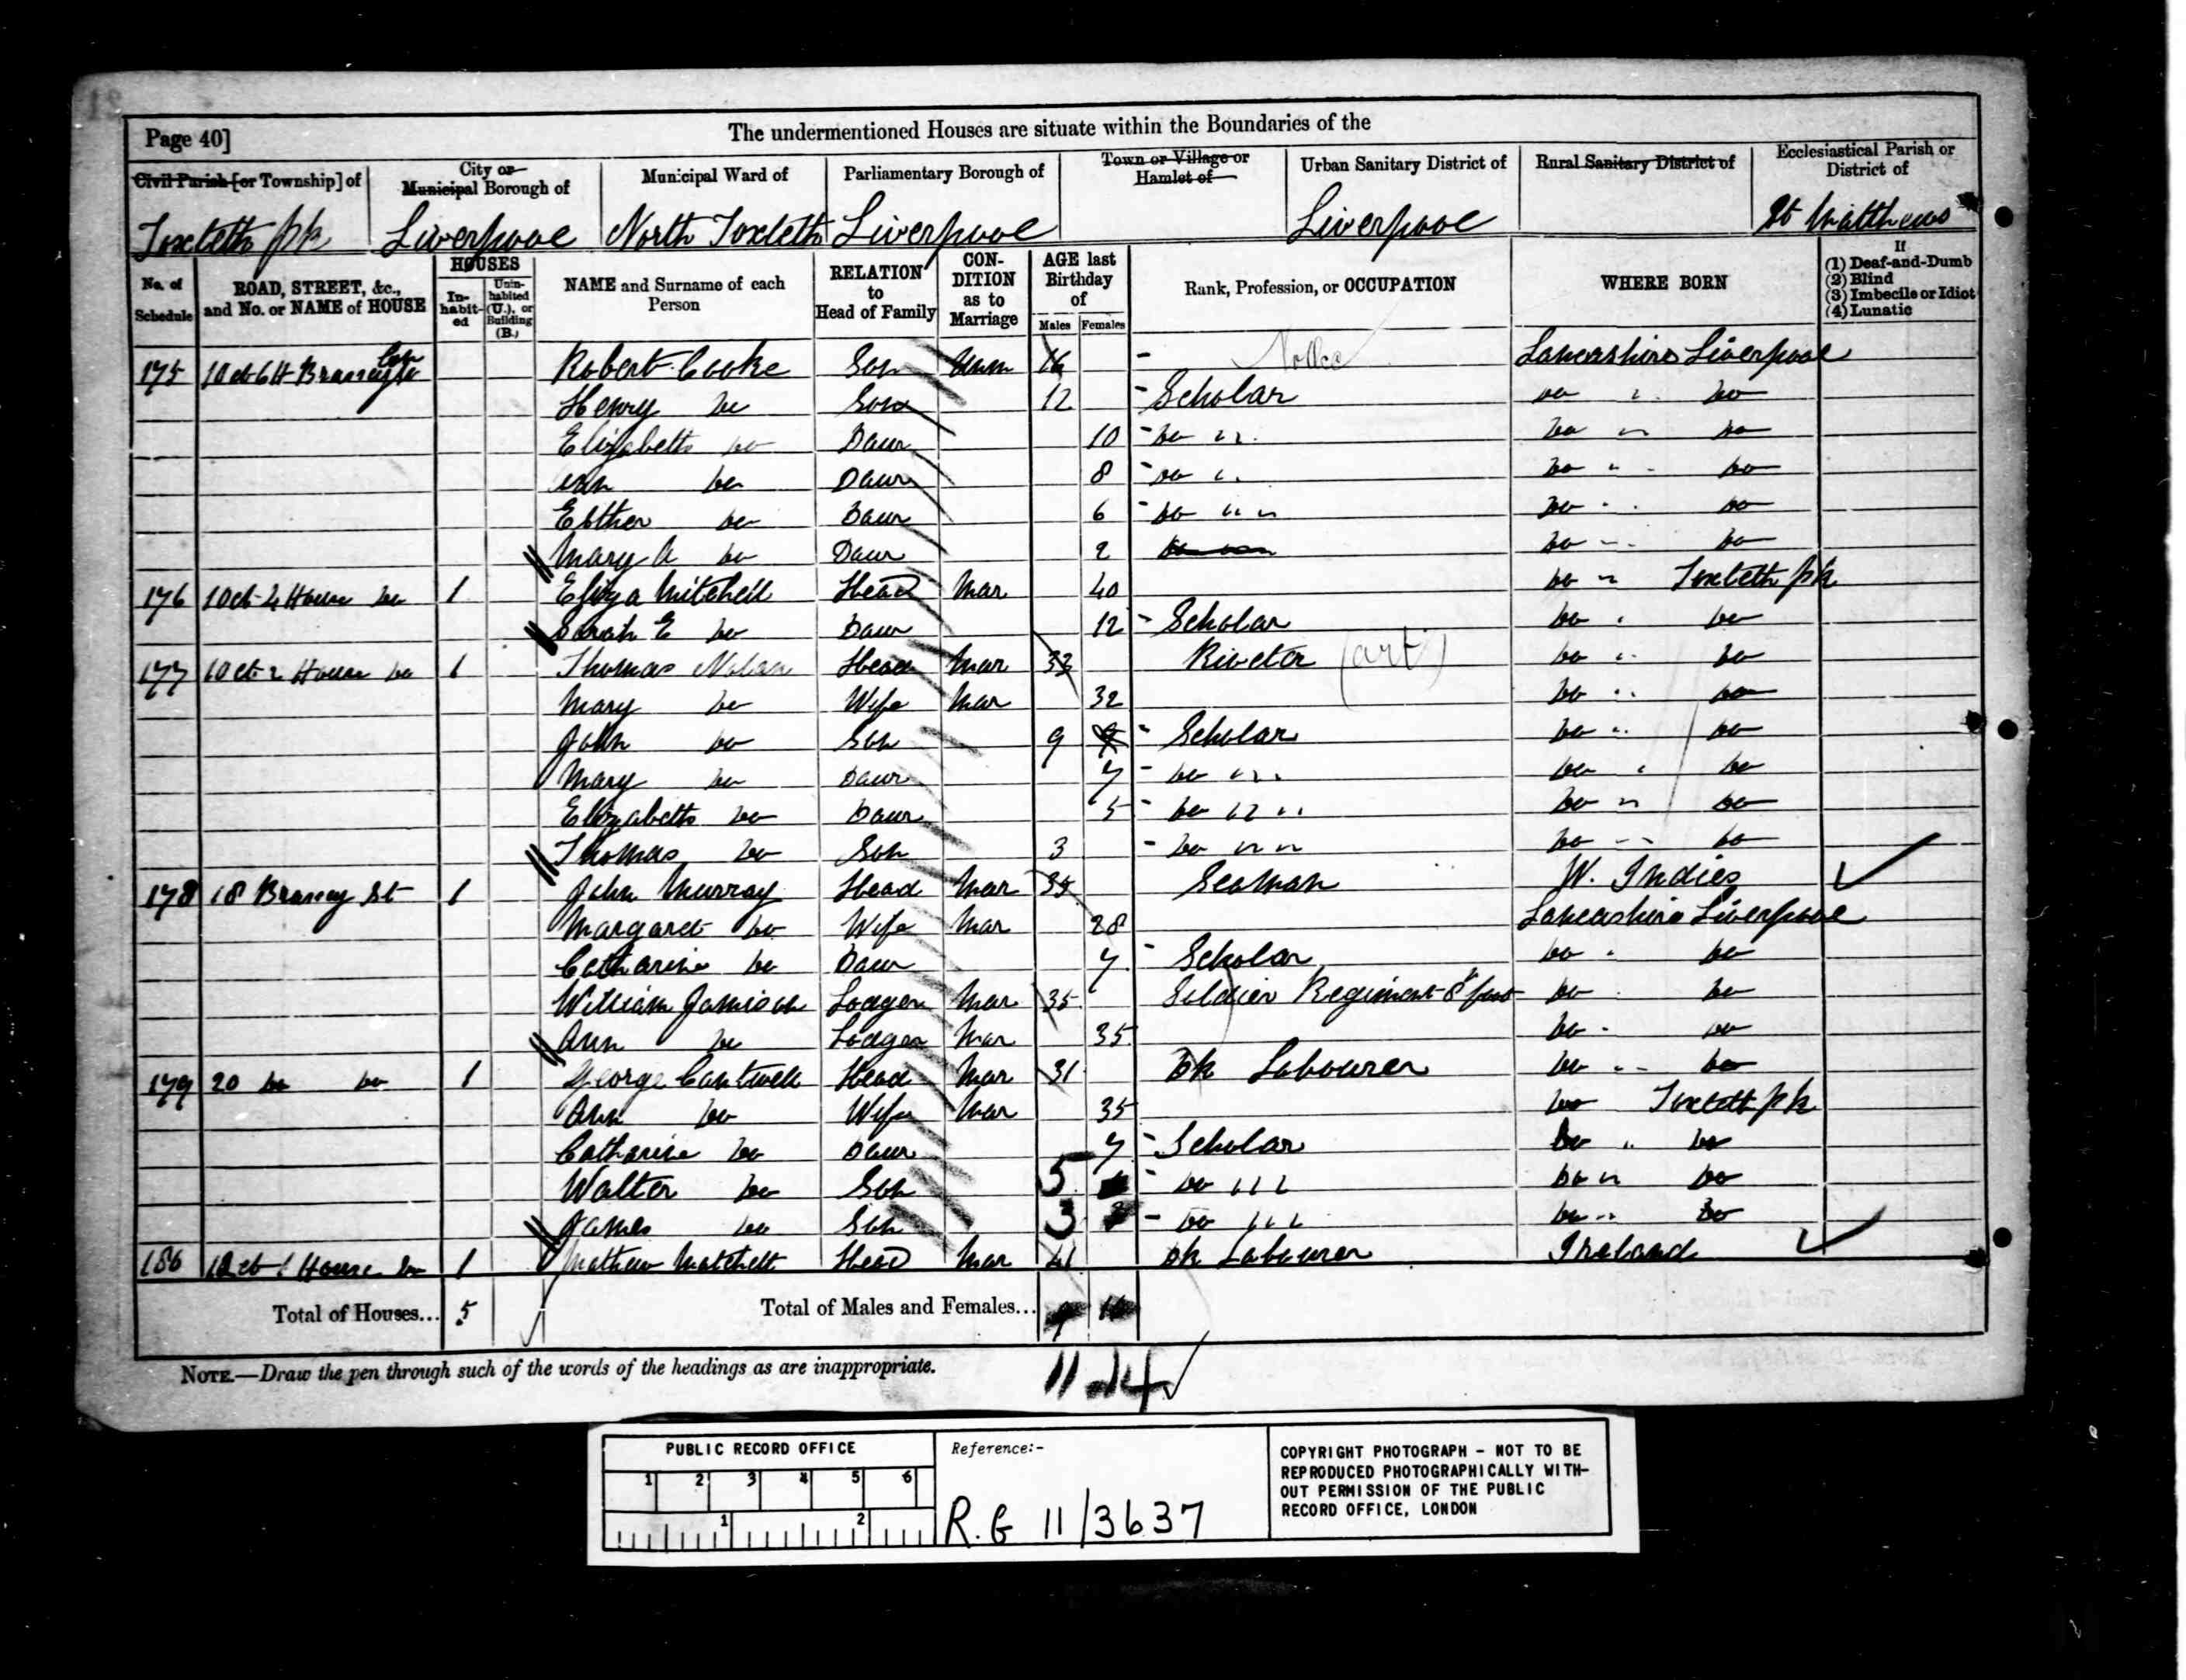 Page 40]
The undermentioned Houses are situate within the Boundaries of the
Civil Parish [or Township] of
City or Municipal Borough of
Municipal Ward of
Parliamentary Borough of
Town or Village or Hamlet of
Urban Sanitary District of
Rural Sanitary District of
Ecclesiastical Parish or District of
Toxteth pk Liverpool North Toxteth Liverpool Liverpool St Matthews
No. of Schedule
ROAD, STREET, &c., and No. or NAME of HOUSE
HOUSES
Inhabited
Uninhabited (U.), or Building (B.)
NAME and Surname of each Person
RELATION to Head of Family
CONDITION as to Marriage
AGE last Birthday of
Males Females
Rank, Profession, or OCCUPATION
WHERE BORN
If
(1) Deaf-and-Dumb
(2) Blind
(3) Imbecile or Idiot
(4) Lunatic
175 Robert Cooke Son Unm 16 - Lancashire Liverpool
Henry Do Son 12 - Scholar Do " Do
Elizabeth Do Daur 10 - Do " Do " Do
Ann Do Daur 8 - Do " Do " Do
Esther Do Daur 6 - Do " " Do " Do
Mary A Do Daur 2 Do " Do
176 1 Ct 4 House Do 1 Eliza Mitchell Head Mar 40 Do " Toxteth pk
Sarah E Do Daur 12 - Scholar Do " Do
177 1 Ct 2 House Do 1 Thomas Nolan Head Mar 33 Riveter (art) Do " Do
Mary Do Wife Mar 32 Do " Do
John Do Son 9 - Scholar Do " Do
Mary Do Daur 7 - Do " " Do " Do
Elizabeth Do Daur 5 - Do " " Do " Do
Thomas Do Son 3 - Do " " Do " Do
178 18 Brassey St 1 John Murray Head Mar Seaman W. Indies
Margaret Do Wife Mar 28 Lancashire Liverpool
Catharine Do Daur 7 - Scholar Do " Do
William Jamison Lodger Mar 35 Soldier Regiment 8 foot Do " Do
Ann Do Lodger Mar 35 Do " Do
179 20 Do Do 1 George Cantwell Head Mar 31 Dk Labourer Do " Do
Ann Do Wife Mar 35 Do Toxteth pk
Catharine Do Daur 7 - Scholar Do " Do
Walter Do Son 5 - Do " " " Do " Do
James Do Son 3 - Do " " " Do " Do
180 1 House Do 1 Mathew Mitchell Head Mar 41 Dk Labourer Ireland
Total of Houses... 5 Total of Males and Females...
NOTE.—Draw the pen through such of the words of the headings as are inappropriate.
11 14
PUBLIC RECORD OFFICE
1 2 3 4 5 6
1 2
Reference:-
R.G 11/3637
COPYRIGHT PHOTOGRAPH - NOT TO BE
REPRODUCED PHOTOGRAPHICALLY WITH-
OUT PERMISSION OF THE PUBLIC
RECORD OFFICE, LONDON